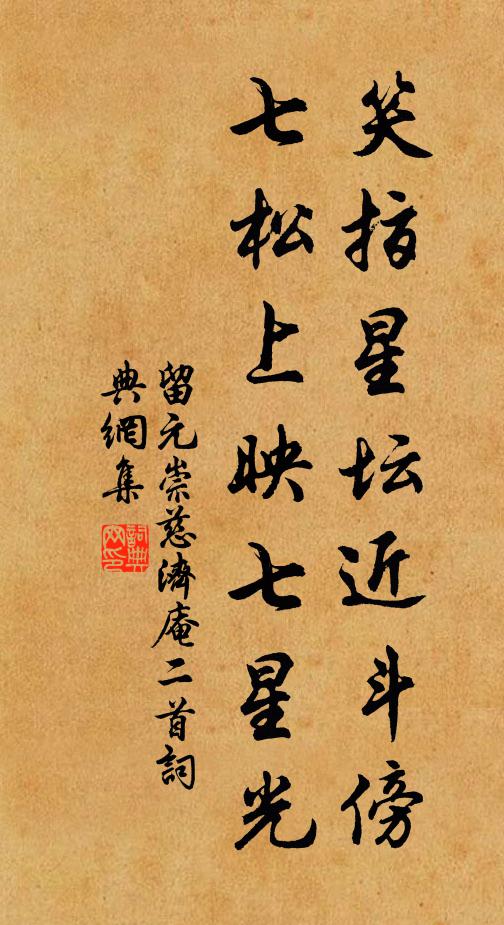 笑指星坛近斗傍
七松上映七星光
留元崇慈濟庵二首詞
典網集
詞典網印